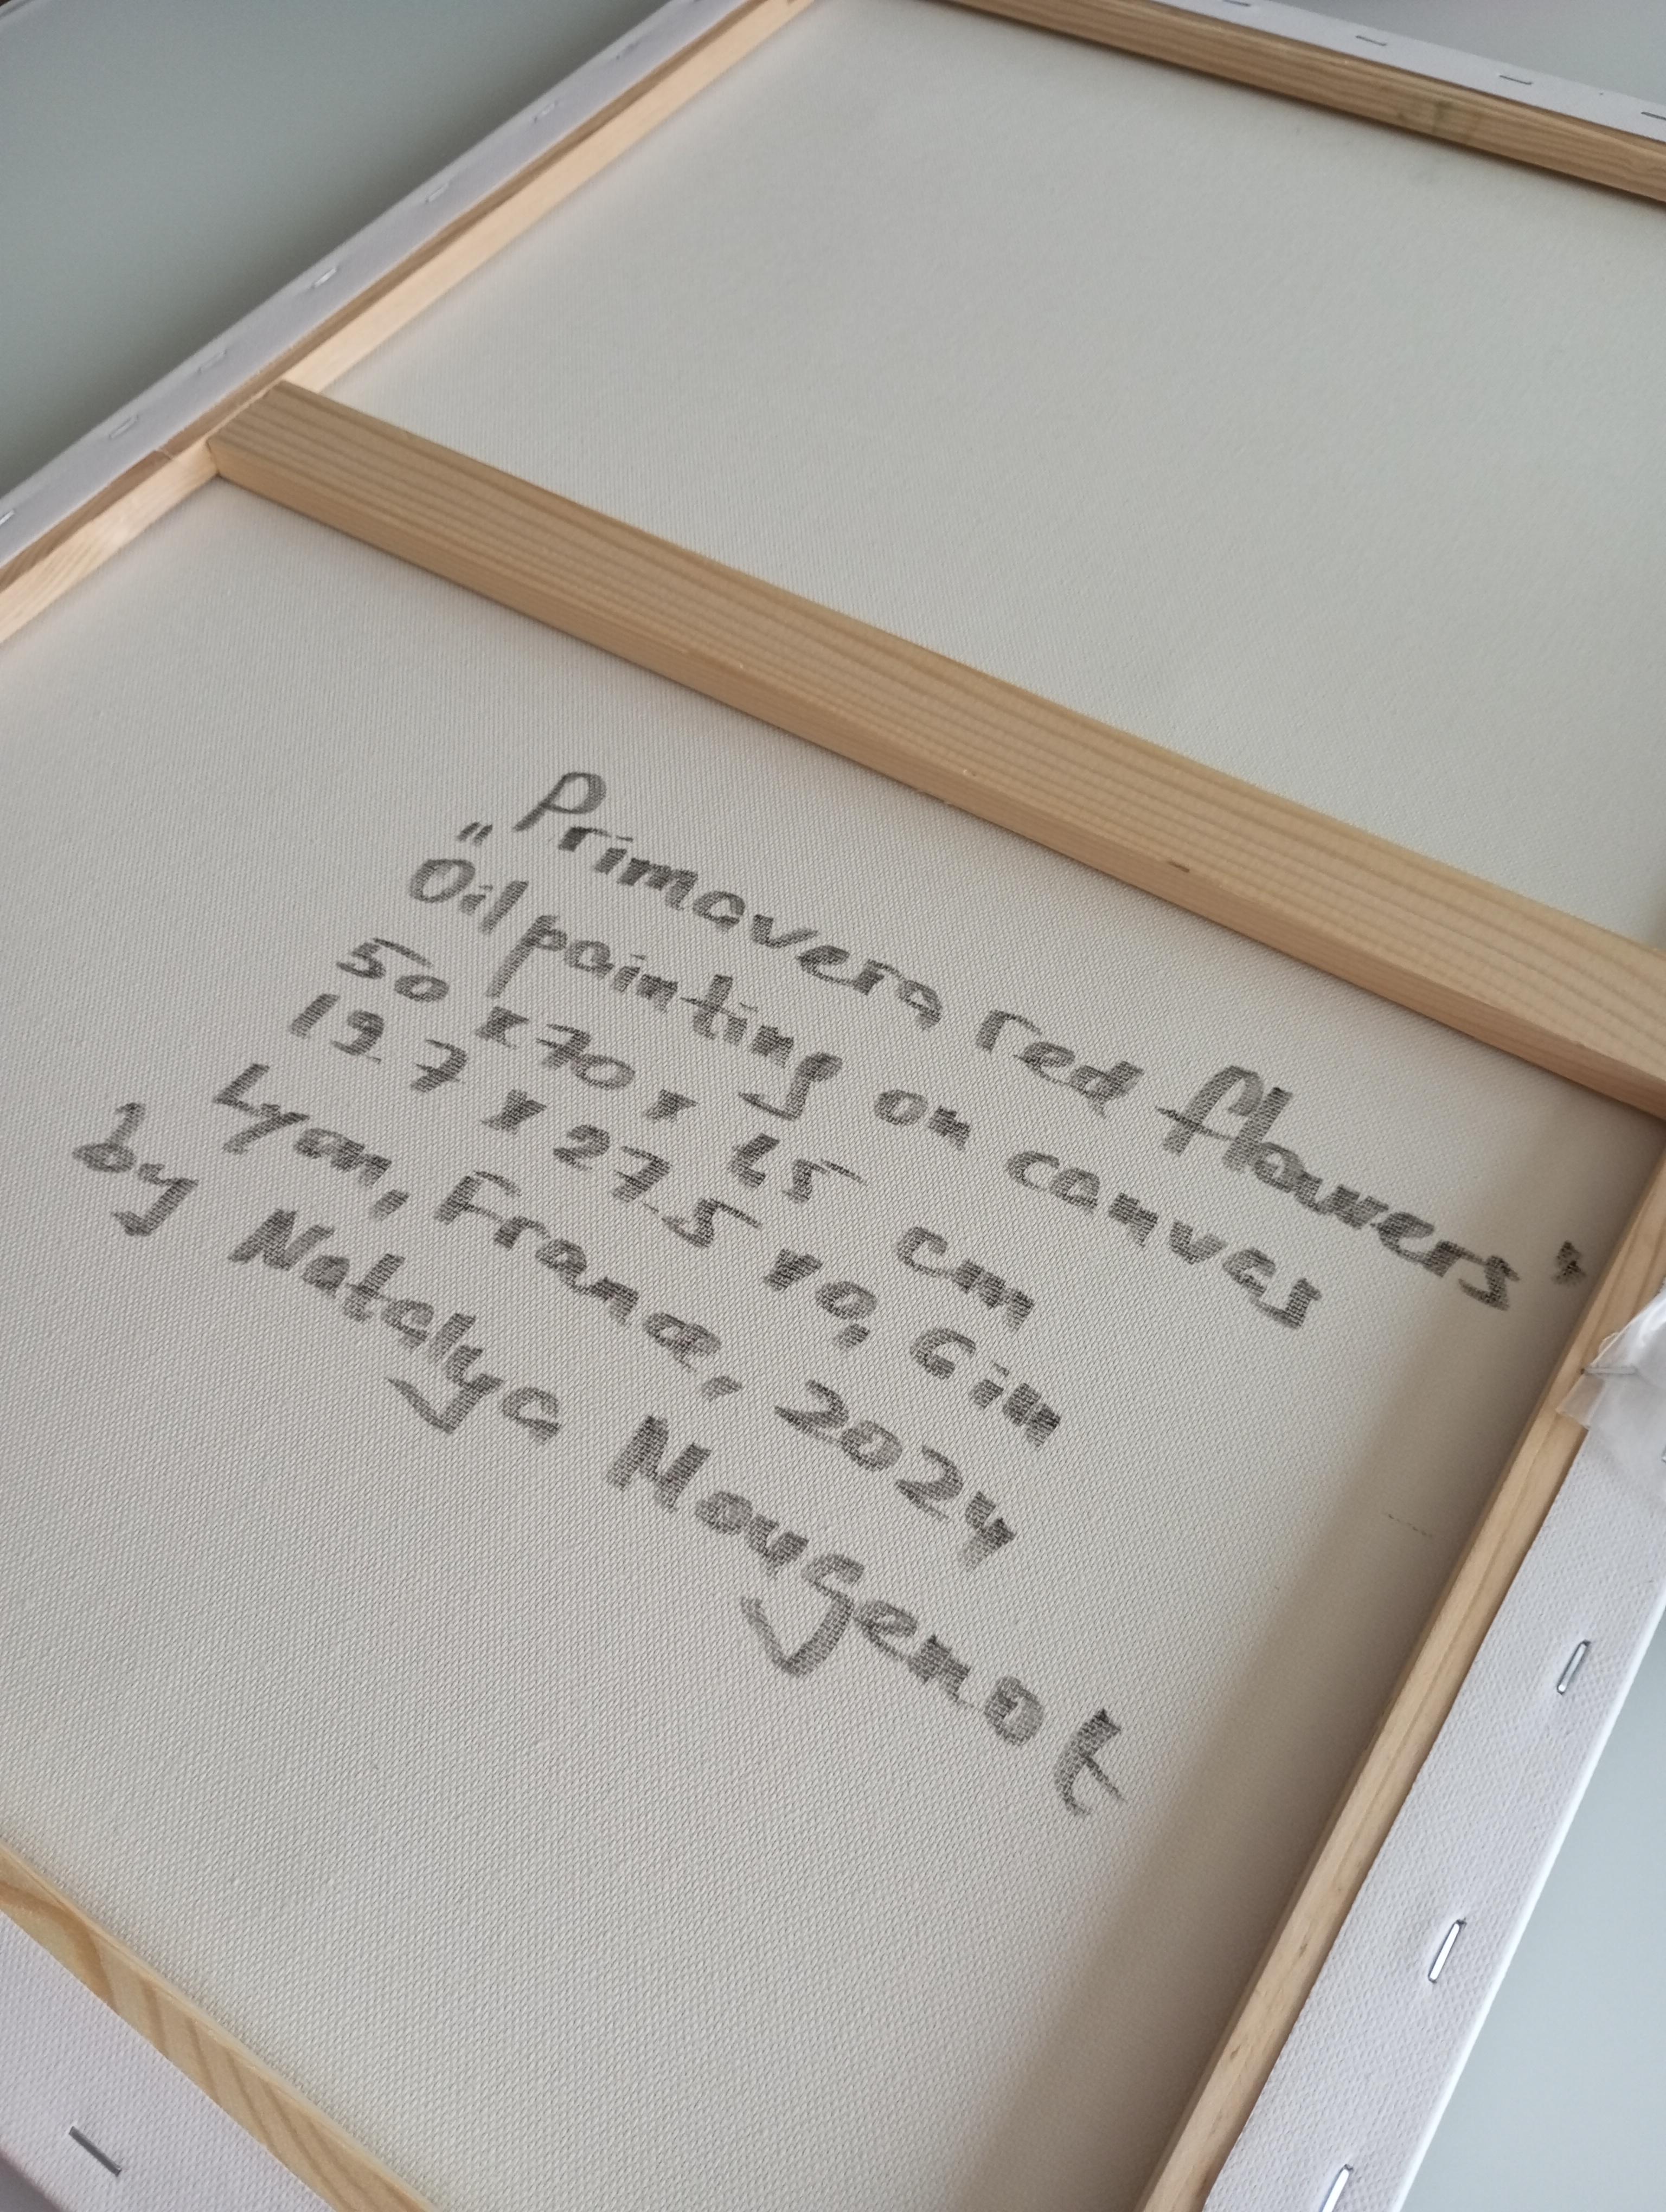 „Primavera, red flowers”
Oil painting on canvas
50 x 70 x 1,5 cm
19.7 x 27.5 x 0,6 in
Lyon, France, 2024
by Natalya Mougenot